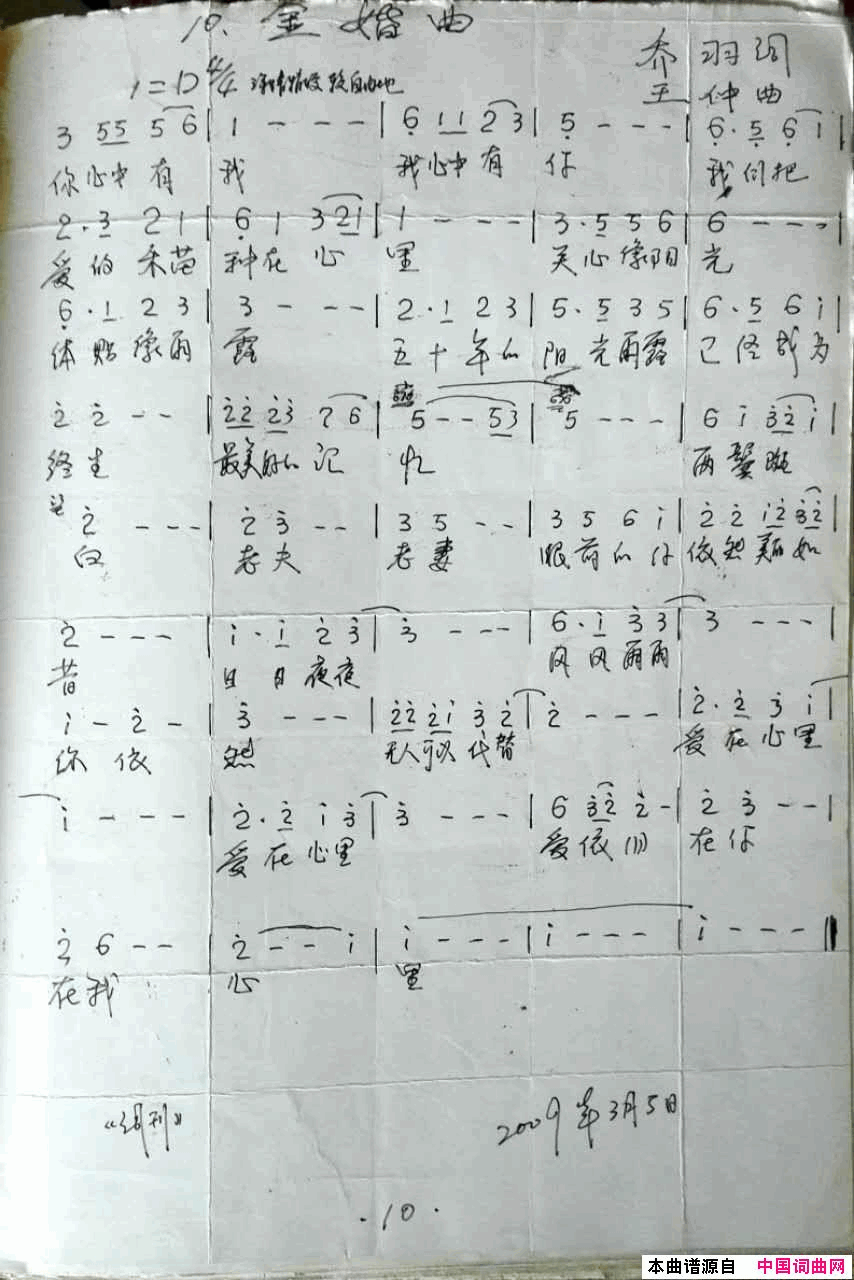 10. 金婚曲
乔羽词
1=D 4/4
王仲曲
3 55 5 6 | 1 - - - | 6 11 2 3 | 5 - - - | 6· 5 6 i |
你心中有 我 我心中有 你 我们把
2·3 2 1 | 6 1 3 2i | 1 - - - | 3·5 5 6 | 6 - - - |
爱的禾苗 种在心 里 关心像阳 光
6·1 2 3 | 3 - - - | 2·1 2 3 | 5·5 3 5 | 6·5 6 i |
体贴像雨 露 五十年的 阳光雨露 已经成为
2 2 - - | 22 23 7 6 | 5 - - 53 | 5 - - - | 6 i 32 i |
终生 最美好的记 忆 两鬓斑
2 - - - | 2 3 - - | 3 5 - - | 3 5 6 i | 2 2 i2 32 |
白 老夫 老妻 眼前的你 依然美丽如
2 - - - | i·i 2 3 | 3 - - - | 6·i 3 3 | 3 - - - |
昔 日日夜夜 风风雨雨
i - 2 - | 3 - - - | 22 2i 3 2 | 2 - - - | 2·2 3 i |
你依 然 无人可以代替 爱在心里
i - - - | 2·2 i 3 | 3 - - - | 6 32 2 - | 2 3 - - |
爱在心里 爱依旧 在你
2 6 - - | 2 - - i | i - - - | i - - - | i - - - ||
在我 心 里
2009年3月5日
·10·
本曲谱源自 中国词曲网